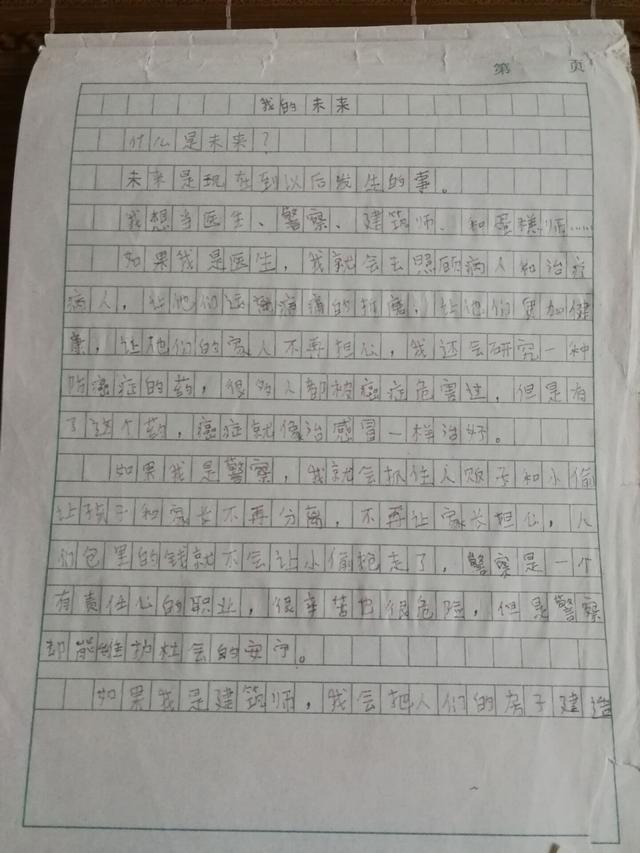 第 页
我的未来
什么是未来？
未来是现在到以后发生的事。
我想当医生、警察、建筑师、和蛋糕师……
如果我是医生，我就会去照顾病人和治疗
病人，让他们远离病痛的折磨，让他们更加健
康，让他们的家人不再担心，我还会研究一种
防癌症的药，很多人都被癌症危害过，但是有
了这个药，癌症就像治感冒一样治好。
如果我是警察，我就会抓住人贩子和小偷
让孩子和家长不再分离，不再让家长担心，人
们包里的钱就不会让小偷抢走了，警察是一个
有责任心的职业，很辛苦也很危险，但是警察
却能维护社会的安宁。
如果我是建筑师，我会把人们的房子建造